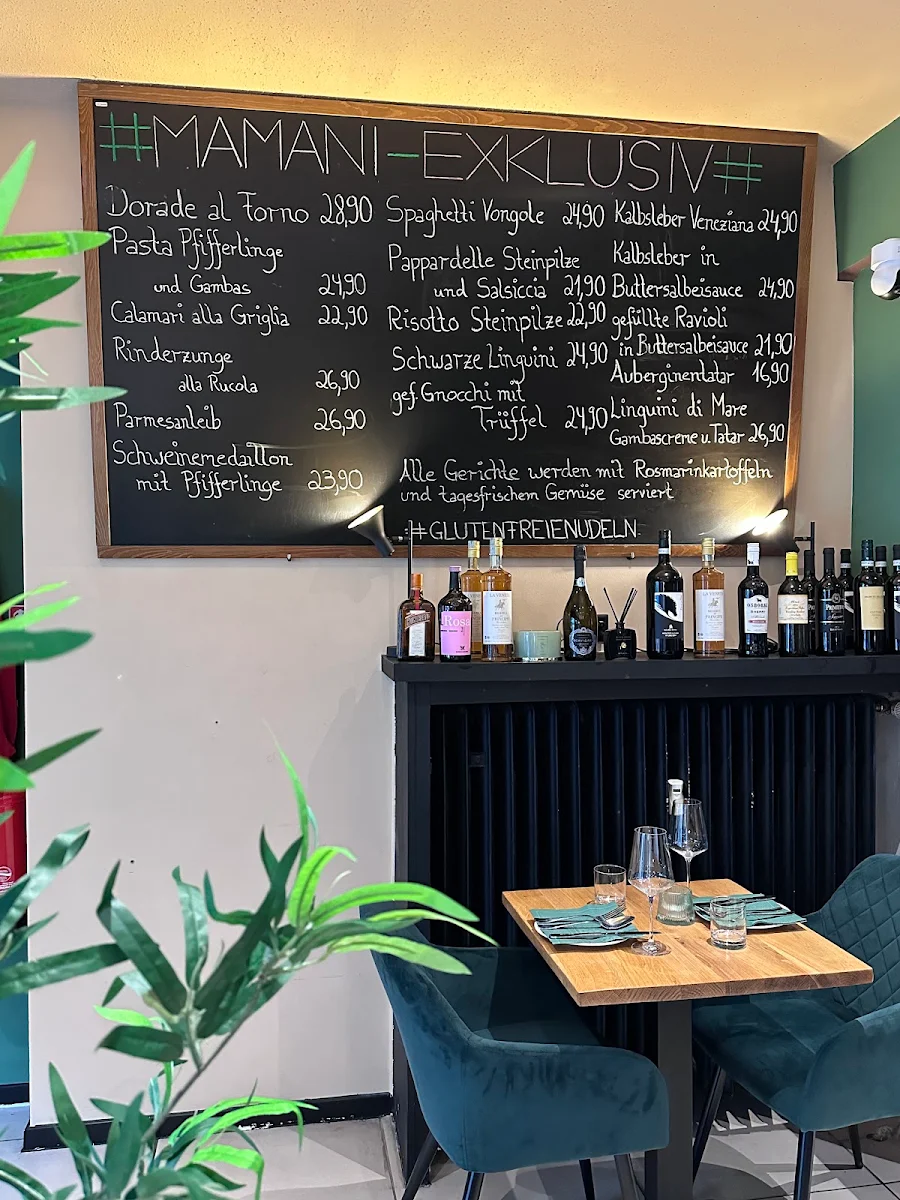 #MAMANI-EXKLUSIV#
Dorade al Forno 28,90
Pasta Pfifferlinge
und Gambas 24,90
Calamari alla Griglia 22,90
Rinderzunge
alla Rucola 26,90
Parmesanleib 26,90
Schweinemedaillon
mit Pfifferlinge 23,90
Spaghetti Vongole 24,90
Pappardelle Steinpilze
und Salsiccia 21,90
Risotto Steinpilze 22,90
Schwarze Linguini 24,90
gef. Gnocchi mit
Trüffel 24,90
Kalbsleber Veneziana 24,90
Kalbsleber in
Buttersalbeisauce 24,90
gefüllte Ravioli
in Buttersalbeisauce 21,90
Auberginentatar 16,90
Linguini di Mare
Gambascreme u. Tatar 26,90
Alle Gerichte werden mit Rosmarinkartoffeln
und tagesfrischem Gemüse serviert
#GLUTENFREIENUDELN
Rosa